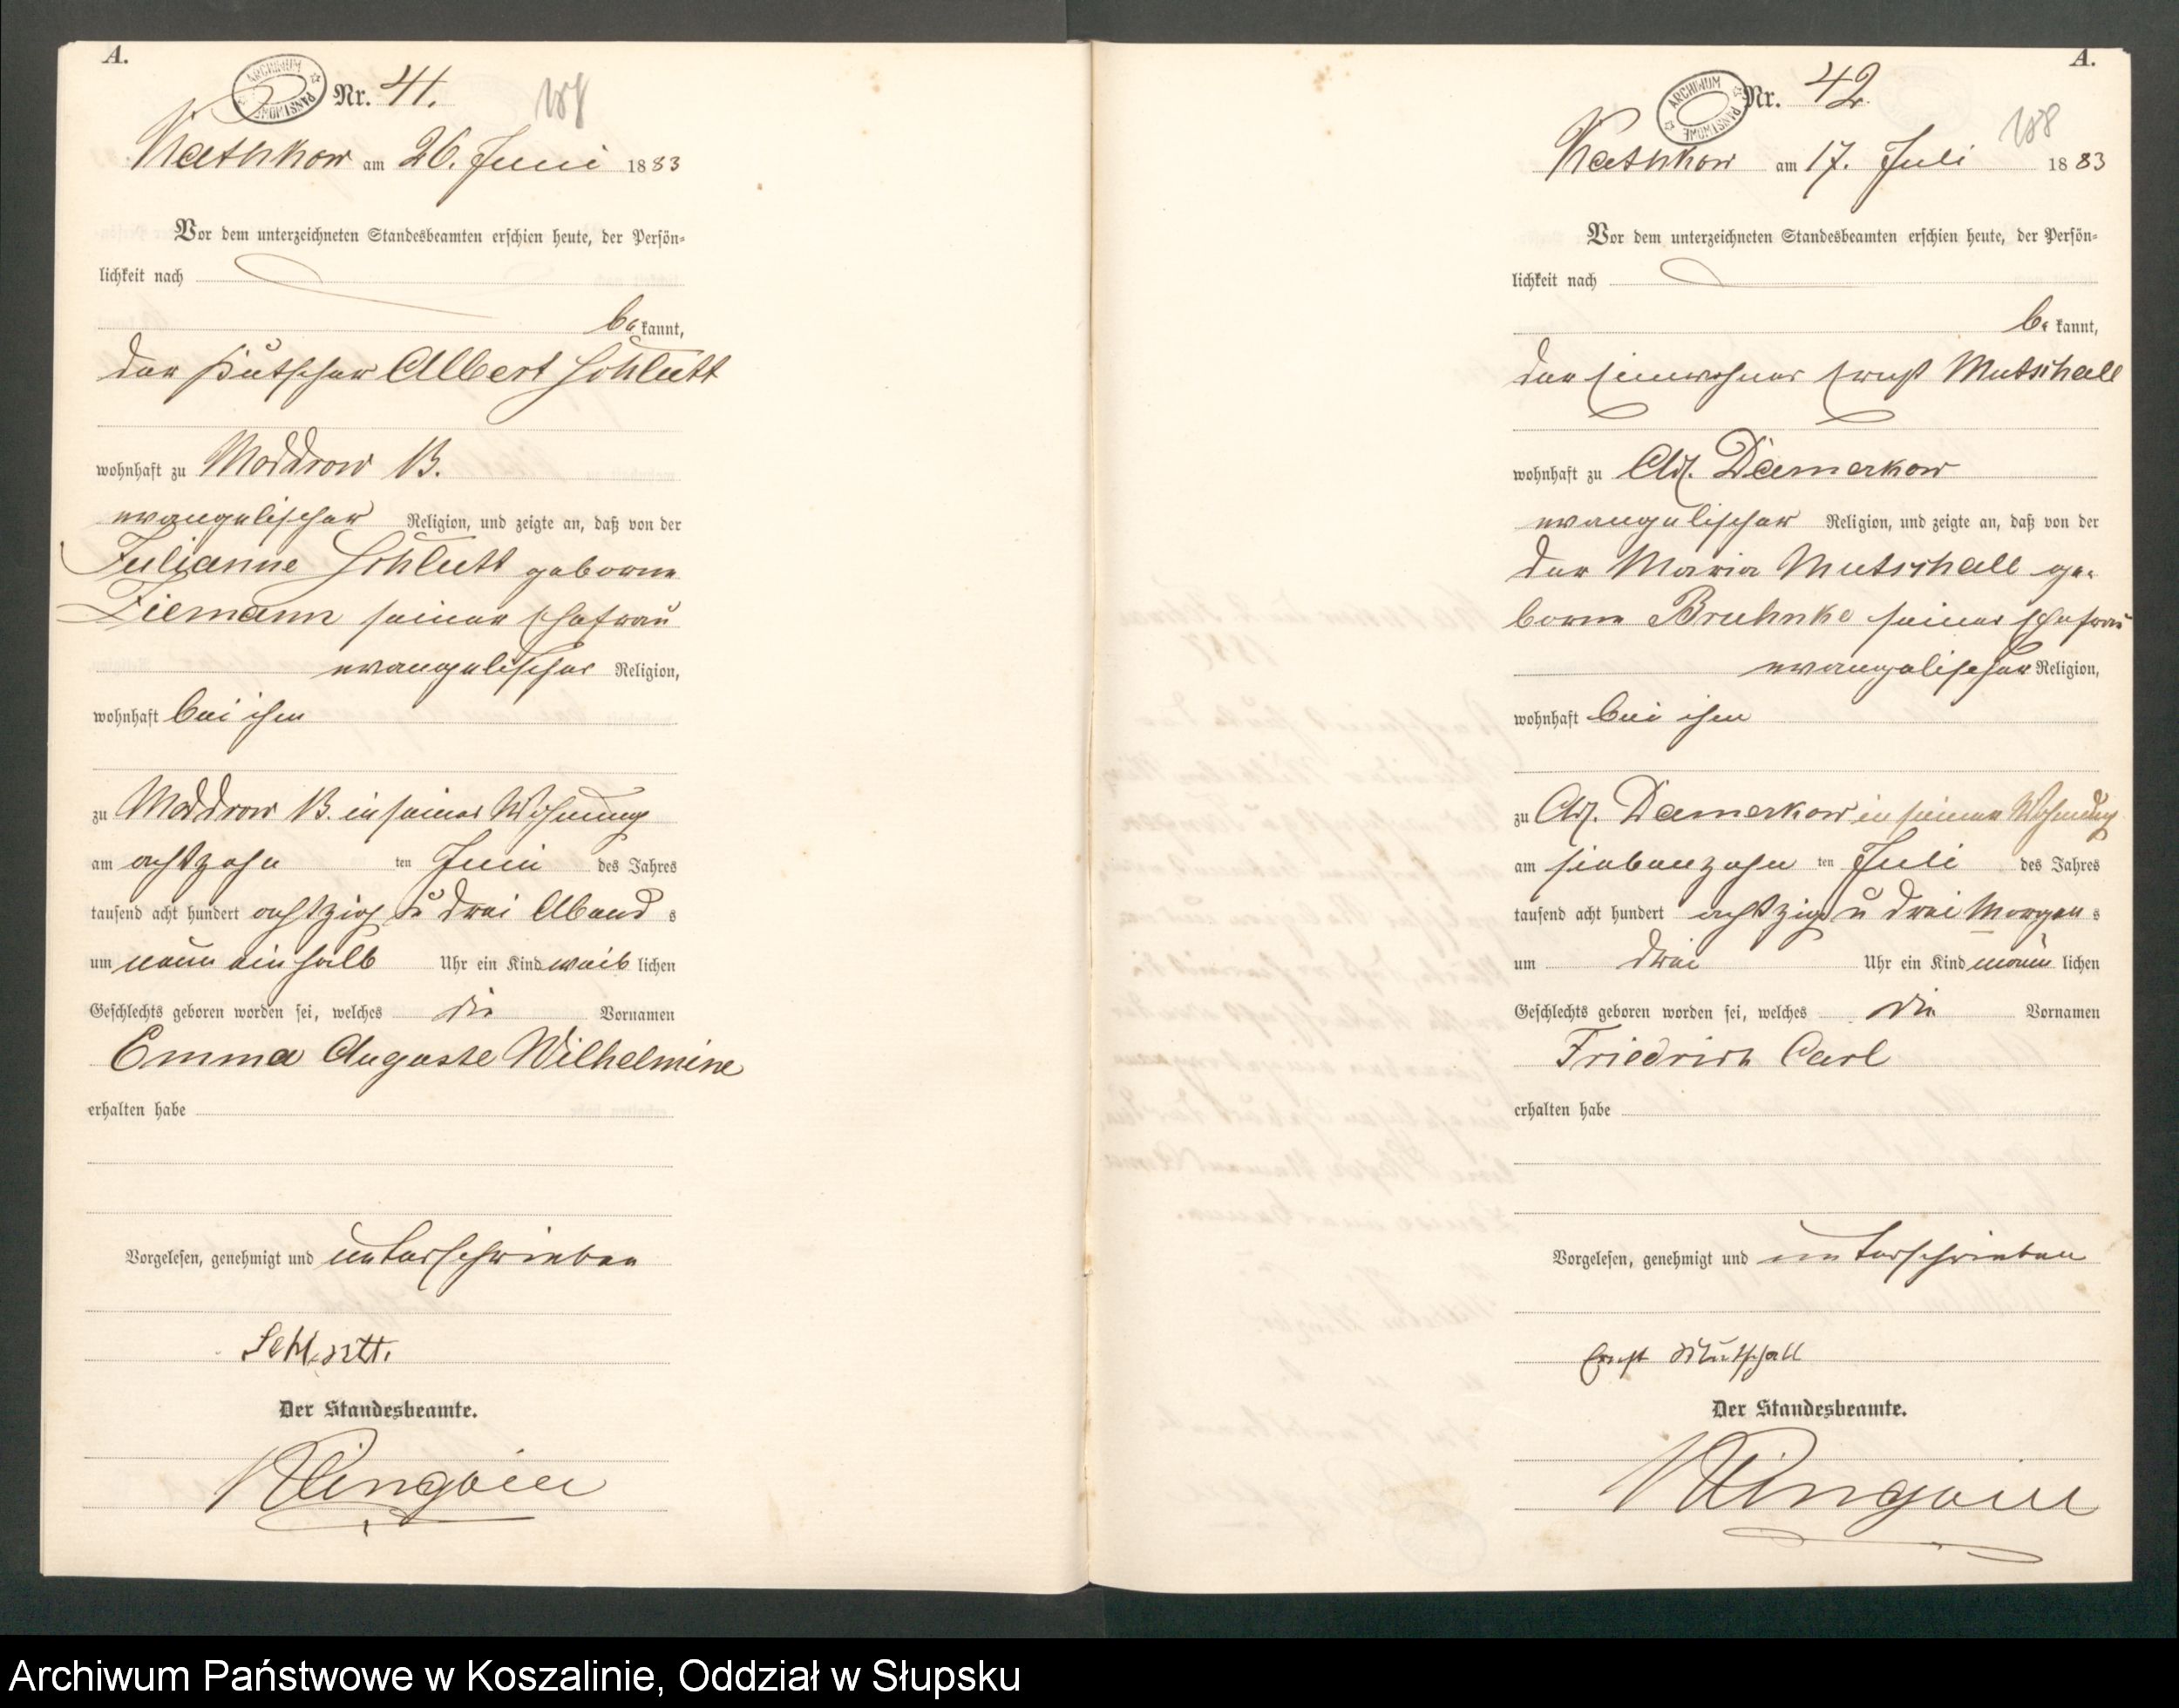 A.
ARCHIWUM PAŃSTWOWE
Nr. 41.
Kathkow am 26. Juni 1883
Vor dem unterzeichneten Standesbeamten erschien heute, der Persön-
lichkeit nach
be kannt,
der Kutscher Albert Schlutt
wohnhaft zu Moddrow B.
evangelischer Religion, und zeigte an, daß von der
Julianne Schlutt geborne
Ziemann seiner Ehefrau
evangelischer Religion,
wohnhaft bei ihm
zu Moddrow B. in seiner Wohnung
am achtzehn ten Juni des Jahres
tausend acht hundert achtzig u drei Abend s
um neun ein halb Uhr ein Kind weib lichen
Geschlechts geboren worden sei, welches die Vornamen
Emma Auguste Wilhelmine
erhalten habe
Vorgelesen, genehmigt und unterschrieben
Schlutt.
Der Standesbeamte.
A.
ARCHIWUM PAŃSTWOWE
Nr. 42
188
Kathkow am 17. Juli 1883
Vor dem unterzeichneten Standesbeamten erschien heute, der Persön-
lichkeit nach
be kannt,
der Einwohner Ernst Mutschall
wohnhaft zu Adl. Damerkow
evangelischer Religion, und zeigte an, daß von der
der Maria Mutschall ge-
borne Bruhnke seiner Ehefrau
evangelischer Religion,
wohnhaft bei ihm
zu Adl. Damerkow in seiner Wohnung
am siebenzehn ten Juli des Jahres
tausend acht hundert achtzig u drei Morgen s
um drei Uhr ein Kind männ lichen
Geschlechts geboren worden sei, welches die Vornamen
Friedrich Carl
erhalten habe
Vorgelesen, genehmigt und unterschrieben
Ernst Mutschall
Der Standesbeamte.
Archiwum Państwowe w Koszalinie, Oddział w Słupsku